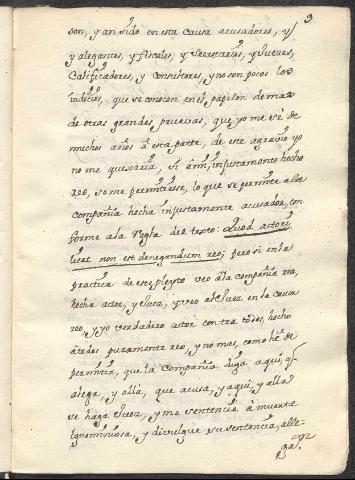 9
son, y an sido en esta causa acusadores, y
y alegantes, y fiscales, y Secretarios, y Jueces,
Calificadores, y Consultores, y no son pocos los
indicios, que se conocen en el papelon de mas
de otras grandes pruevas, que yo me sè de
muchos años à esta parte, de este agravio yo
no me quexaria, si à mi, injustamente hecho
reo, se me permitiesse, lo que se permite a la
Compañia hecha injustamente acusadora, con
forme a la Regla del texto: Quod actori
licet non est denegandum reo; pero si en la
practica de este pleyto veo à la Compañia rea,
hecha actor, y Juez, y veo al Juez en la causa
reo, y yo verdadero actor contra todos, hecho
à todos puramente reo, y no mas, como hè de
permitir, que la Compañia diga aqui, q
alega, y allà, que acusa, y aqui, y allà
se haga Juez, y me sentencie à muerte
ignominiosa, y divulgue su sentencia, alle-
ga